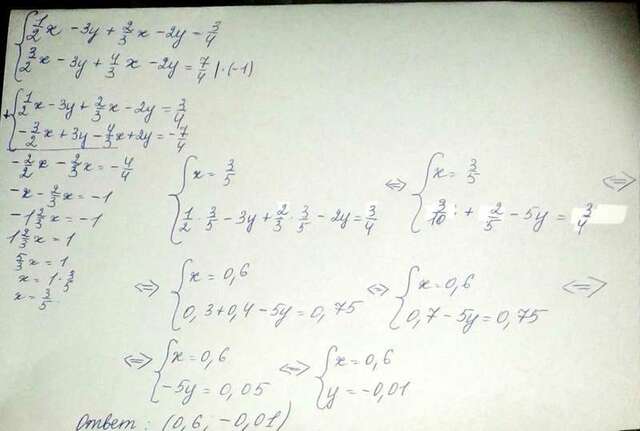 { 1/2 x - 3y + 2/3 x - 2y - 3/4
3/2 x - 3y + 4/3 x - 2y = 7/4 | · (-1)
+ { 1/2 x - 3y + 2/3 x - 2y = 3/4
- 3/2 x + 3y - 4/3 x + 2y = - 7/4
- 2/2 x - 2/3 x = - 4/4
- x - 2/3 x = -1
-1 2/3 x = -1
1 2/3 x = 1
5/3 x = 1
x = 1 · 3/5
x = 3/5
{ x = 3/5
1/2 · 3/5 - 3y + 2/3 · 3/5 - 2y = 3/4
<=> { x = 3/5
3/10 + 2/5 - 5y = 3/4 <=>
<=> { x = 0,6
0,3 + 0,4 - 5y = 0,75
<=> { x = 0,6
0,7 - 5y = 0,75 <=>
<=> { x = 0,6
-5y = 0,05
<=> { x = 0,6
y = -0,01
Ответ: (0,6; -0,01)